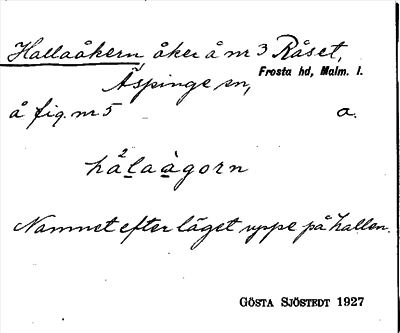 Hallaåkern, åker å nr 3 Råset,
Frosta hd, Malm. l.
Äspinge sn,
å fig. nr 5 a.
hålaàgorn
Namnet efter läget uppe på hallen.
GÖSTA SJÖSTEDT 1927